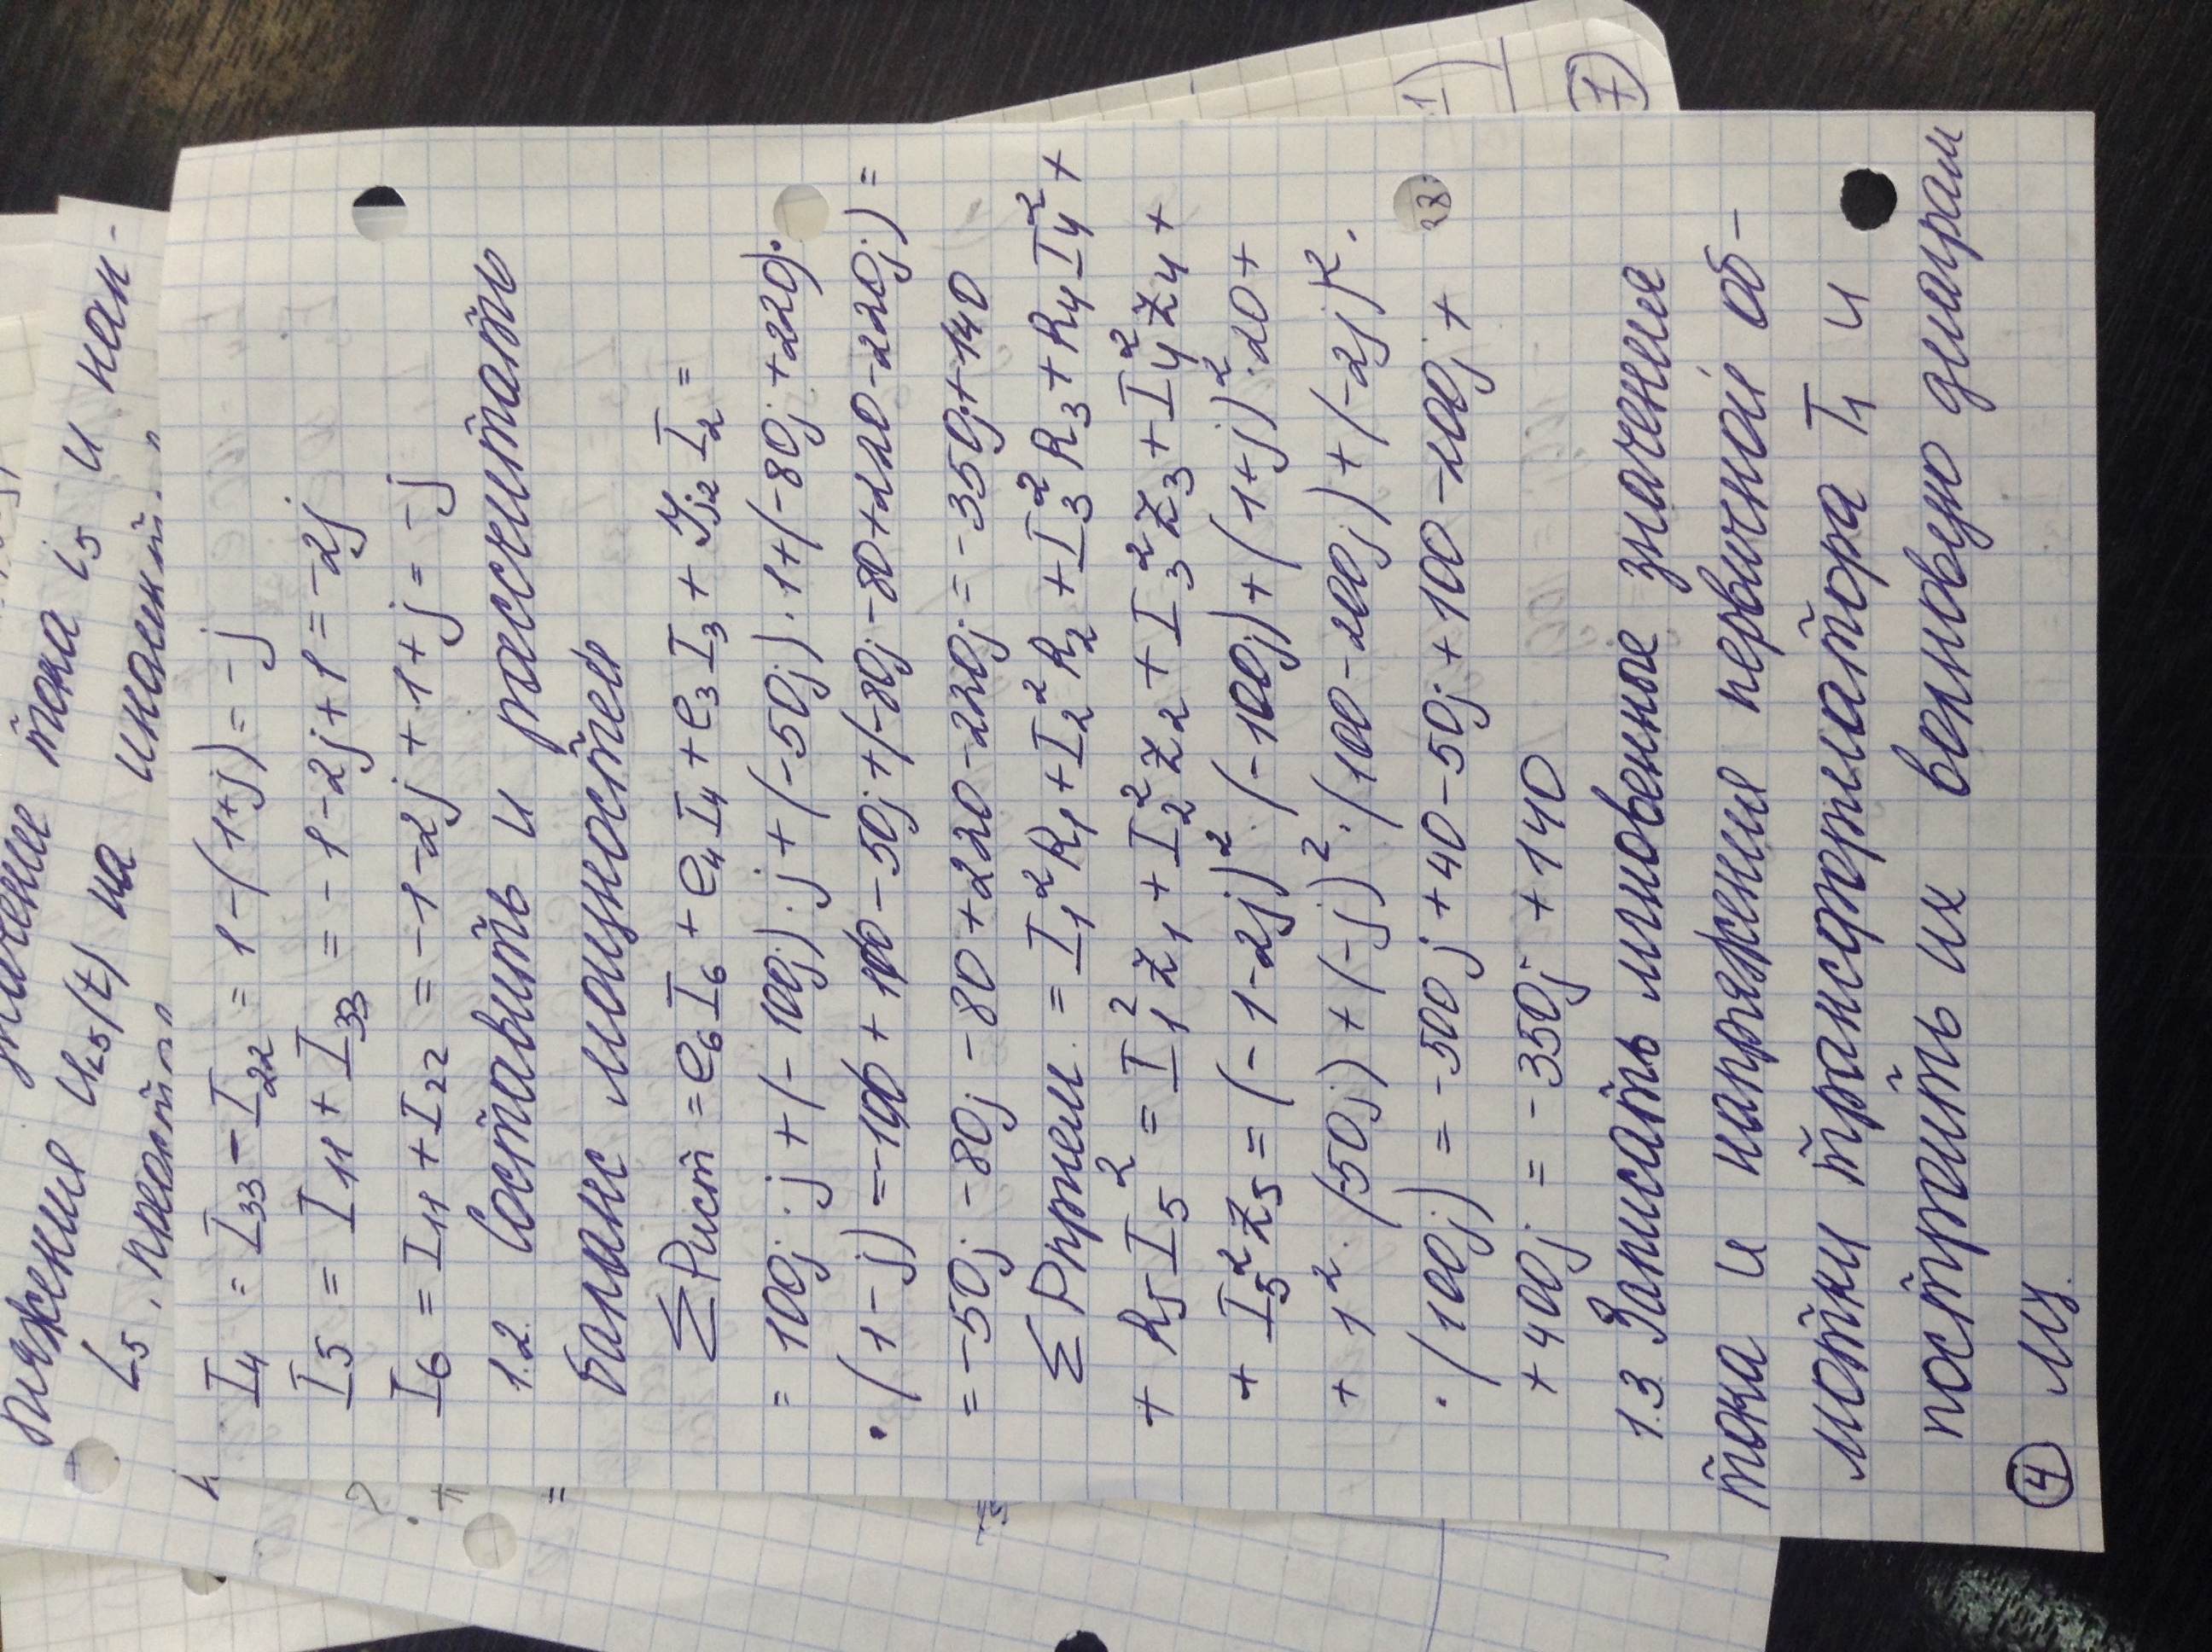 тока i₅ и нап-
ряжения u₅(t) на
L₅,
I₄ = I₃₃ - I₂₂ = 1-(1+j) = -j
I₅ = I₁₁ + I₃₃ = -1-2j+1 = -2j
I₆ = I₁₁ + I₂₂ = -1-2j+1+j = -j
1.2. Составить и рассчитать
баланс мощностей
∑Pист = e₆I₆ + e₄I₄ + e₃I₃ + Yj₂I₂ =
= 100j·j+(-100j)·j+(-50j)·1+(-80j+220)·
·(1-j) = -100+100-50j+(-80j-80+220-220j) =
= -50j-80j-80+220-220j = -350j+140
∑Pприем. = I₁²R₁+I₂²R₂+I₃²R₃+R₄I₄²+
+ R₅I₅² = I₁²Z₁+I₂²Z₂+I₃²Z₃+I₄²Z₄+
+ I₅²Z₅ = (-1-2j)²·(-100j)+(1+j)²·20+
+ 1²·(-50j)+(-j)²·(100-200j)+(-2j)².
·(100j) = -500j+40-50j+100-200j+
+400j = -350j+140
1.3 Записать мгновенные значения
тока и напряжения первичной об-
мотки трансформатора T₁ и
построить их волновую диаграм
му.
4
1)
7